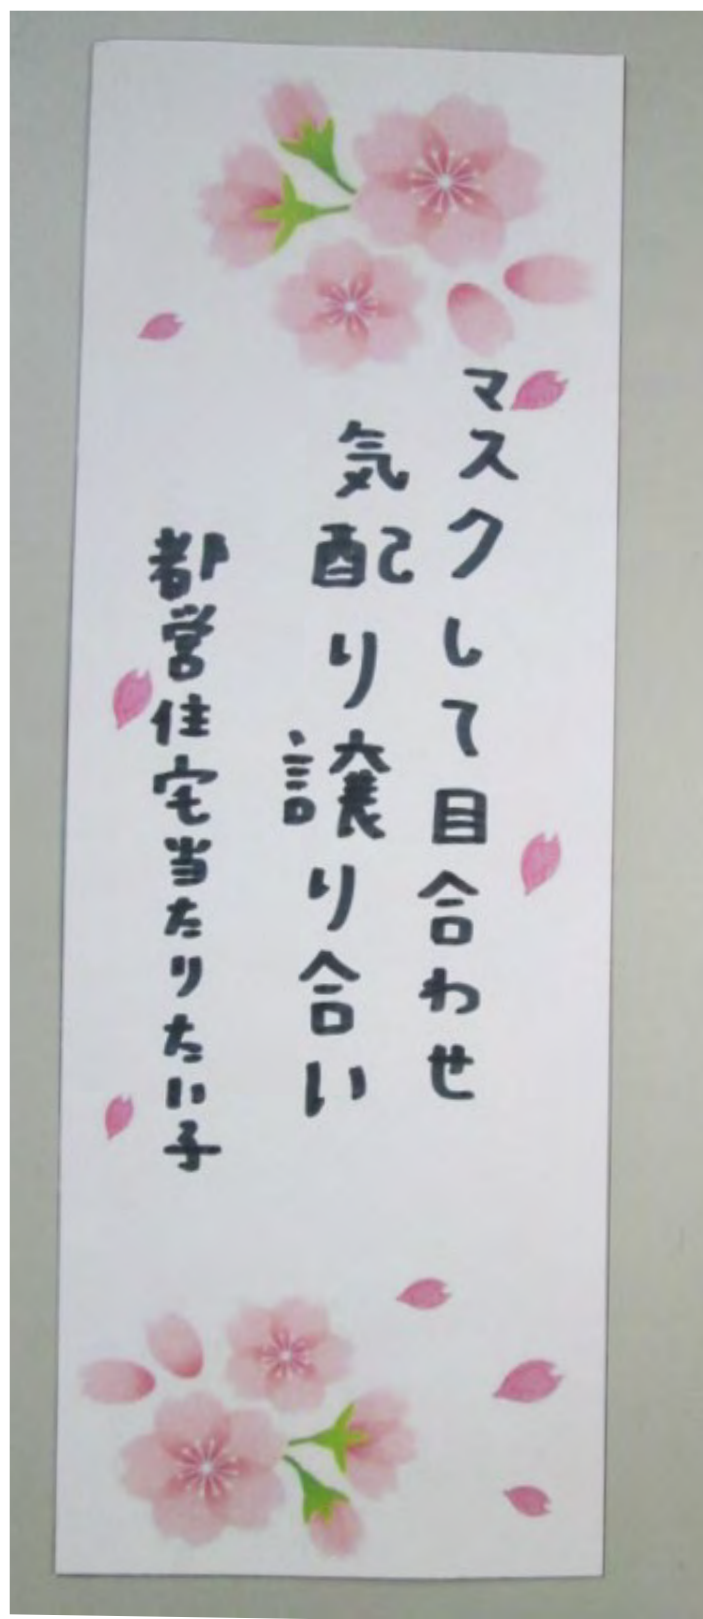 マスクして目合わせ
気配り譲り合い
都営住宅当たりたい子